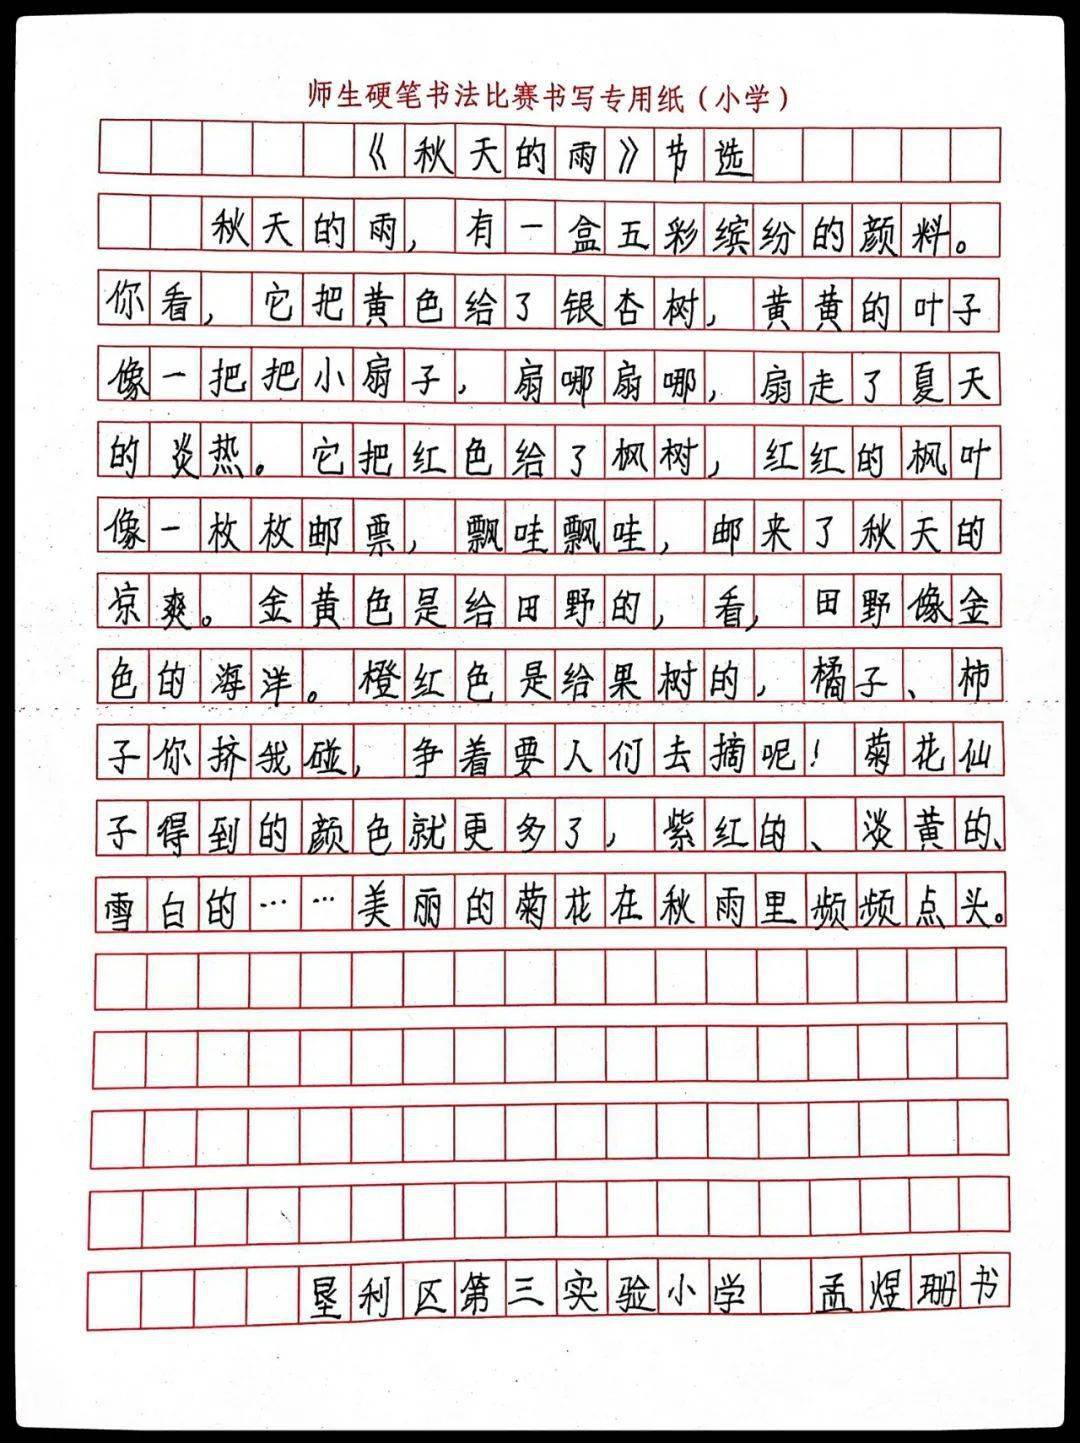 师生硬笔书法比赛书写专用纸（小学）
《秋天的雨》节选
秋天的雨，有一盒五彩缤纷的颜料。
你看，它把黄色给了银杏树，黄黄的叶子
像一把把小扇子，扇哪扇哪，扇走了夏天
的炎热。它把红色给了枫树，红红的枫叶
像一枚枚邮票，飘哇飘哇，邮来了秋天的
凉爽。金黄色是给田野的，看，田野像金
色的海洋。橙红色是给果树的，橘子、柿
子你挤我碰，争着要人们去摘呢！菊花仙
子得到的颜色就更多了，紫红的、淡黄的、
雪白的……美丽的菊花在秋雨里频频点头。
垦利区第三实验小学 孟煜珊书